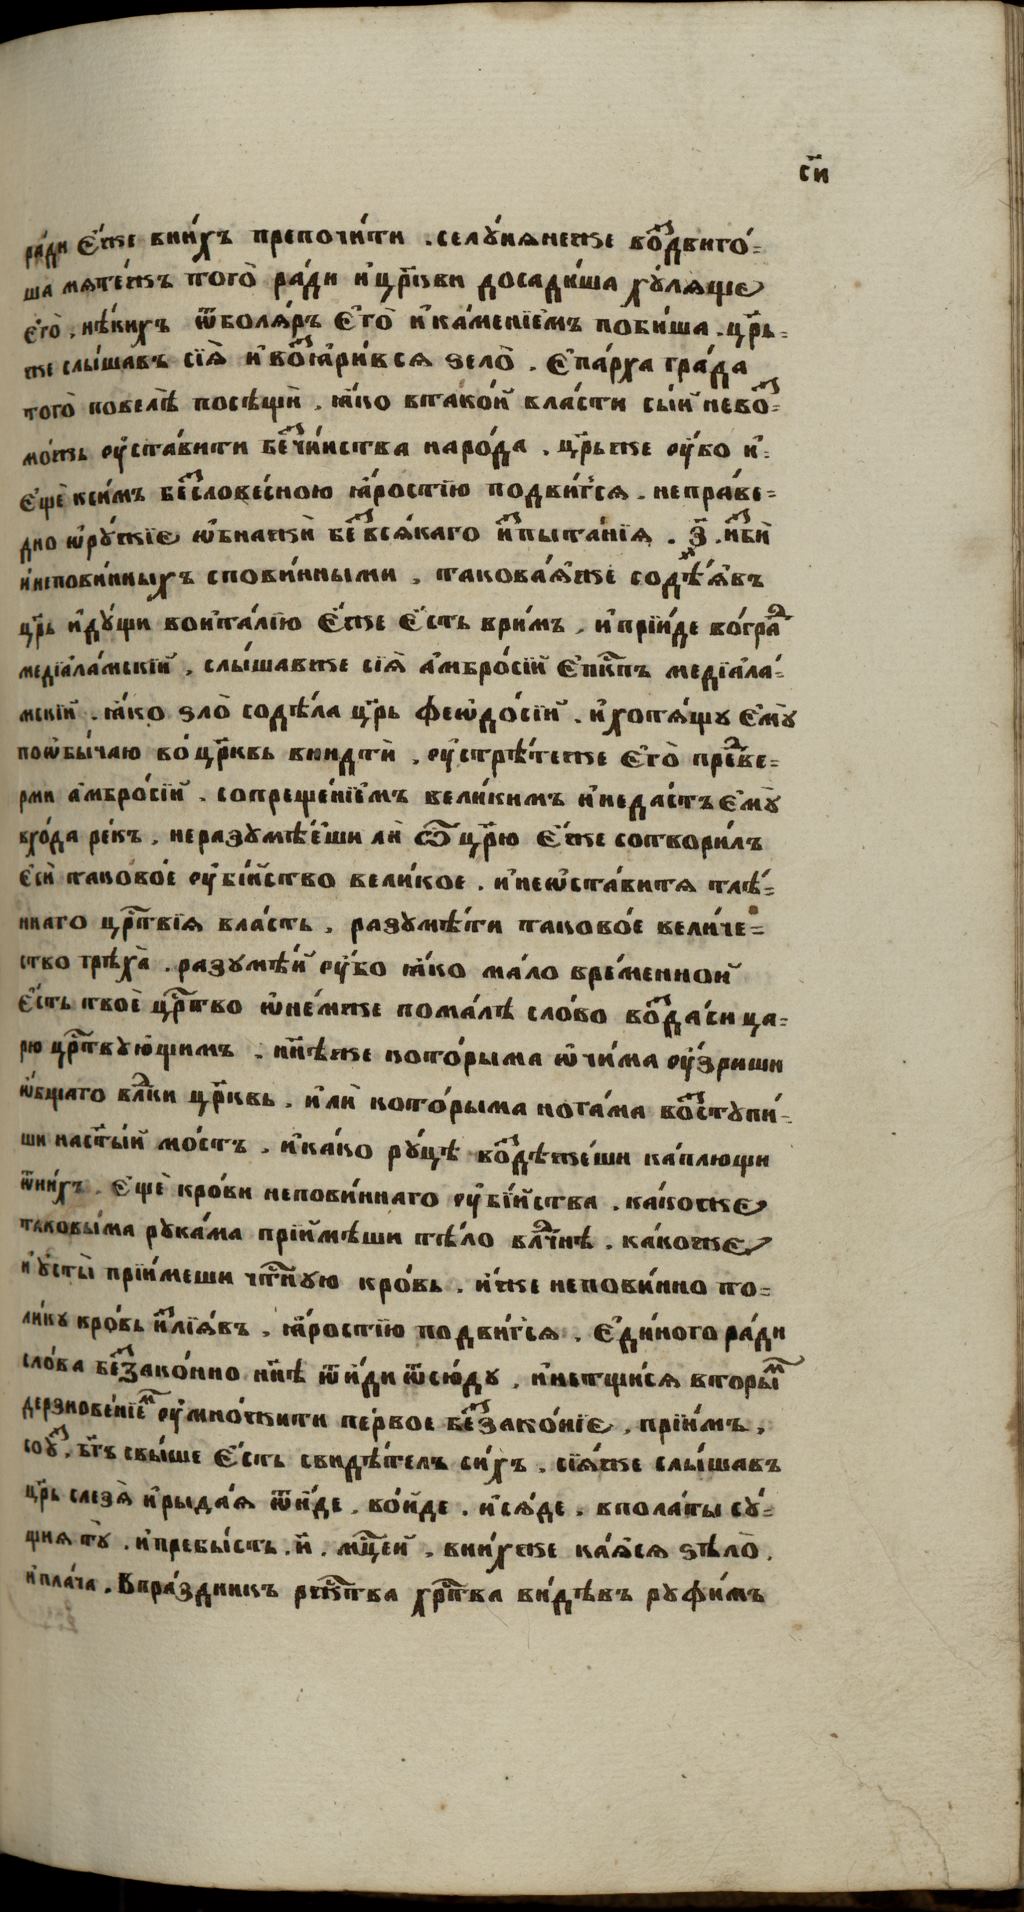 с҃и
ра́ди є҆́же вни́хъ препочи́ти . селꙋ́нянеже воⷥ҇дви́го́=
ша мяте́жъ того̀ ра́ди и҆цр҃кви досади́ша хꙋ́ляще
є҆го̀ , нѣ́кихъ ѿболя́ръ є҆го̀ и҆ка́менїємъ поби́ша . цр҃ь=
же слы́шавъ сїѧ̀ и҆воⷥ҇ꙗри́вся ѕело̀ . є҆па́рха гра́да
того̀ повелѣ̀ посѣщѝ . ꙗ҆́ко втако́й вла́сти сы́й невоⷥ҇=
мо́жь оу҆ста́вити беⷥ҇чи́нства наро́да . цр҃ьже оу҆́бо и҆=
є҆щѐ ксимъ беⷥ҇слове́сною ꙗ҆́ростїю подви́гся . непра́ве=
дно ѡ҆рꙋ́жїє ѡ҆бнажѝ беⷥ҇вся́каго и҆ⷥ҇пыта́нїя . з҃ . и҆ⷥ҇бѝ
инепови́нныхъ спови́нными , такова́яже содѣ́явъ
цр҃ь и҆дꙋ́щи вои҆та́лїю є҆́же є҆́стьври́мъ , и҆прїи́де во́граⷣ
медїала́мскїй , слы́шавже сїѧ̀ а҆мбро́сїй є҆пⷭ҇кпъ медїала́=
мскїй . ꙗ҆́ко ѕло̀ содѣ́ла цр҃ь феѡдо́сїй . и҆хотя́щꙋ є҆мꙋ̀
поѡ҆бы́чаю во́ цр҃квь вни́дтѝ , оу҆срѣ́теже є҆го̀ преⷣве=
рми а҆мбро́сїй . сопреще́нїємъ вели́кимъ и҆неда́стъ є҆мꙋ̀
вхо́да ре́къ , неразꙋмѣ́еши лѝ ѽ цр҃ю є҆́же сотвори́лъ
є҆сѝ таково́е оу҆бі́йство вели́кое . и҆неѡ҆ста́витя тлѣ́=
ннаго црⷭ҇твїя вла́сть , разꙋмѣ́ти таково́е вели́че=
ство грѣха̀ . разꙋмѣ́й оу҆́бо ꙗ҆́ко ма́ло вре́менной
є҆́сть твоѐ црⷭ҇тво ѡ҆не́мже пома́лѣ сло́во воⷥ҇да́си ца=
рю црⷭ҇твꙋ́ющимъ . нн҃ѣже кото́рыма ѡ҆чи́ма оу҆́зриши
ѡ҆́бщаго влⷣки цр҃квь . и҆лѝ кото́рыма нога́ма воⷥ҇стꙋпи́=
ши наст҃ы́й мо́стъ . и҆ка́ко рꙋ́цѣ воⷥ҇дѣже́ши ка́плющи
ѿни́хъ . є҆щѐ кро́ви непови́ннаго оу҆бі́йства . ка́коже
таковы́ма рꙋка́ма прїи́мѣши тѣ́ло влⷣчнѣ . ка́коже
и҆ оу҆сты̀ прїи́меши чтⷭ҇нꙋю кро́вь . и҆́же непови́нно то=
ликꙋ кро́вь и҆ⷥ҇лїя́въ , ꙗ҆́ростїю подви́гся , є҆ди́ного ра́ди
сло́ва беⷥ҇зако́нно нн҃ѣ ѿи҆́ди ѿсю́дꙋ , и҆нетщи́ся вторы́ⷨ
дерзнове́нїеⷨ оу҆мно́жити пе́рвое беⷥ҇зако́нїє , прїи́мъ ,
соꙋⷥ҇ , бг҃ъ свы́ше є҆́сть свидѣ́телъ си́хъ . сїя́же слы́шавъ
цр҃ь слезѧ̀ и҆рыда́я ѿи҆́де . во́йде . и҆ся́де . впола́ты сꙋ́=
щия тꙋ̀ . и҆пребы́сть . и҃ . мцⷭ҇ей . вни́хже ка́яся ѕѣло̀ .
и҆пла́ча . Впра́здникъ ржⷭ҇тва хрⷭ҇тва ви́дѣвъ рꙋфи́мъ